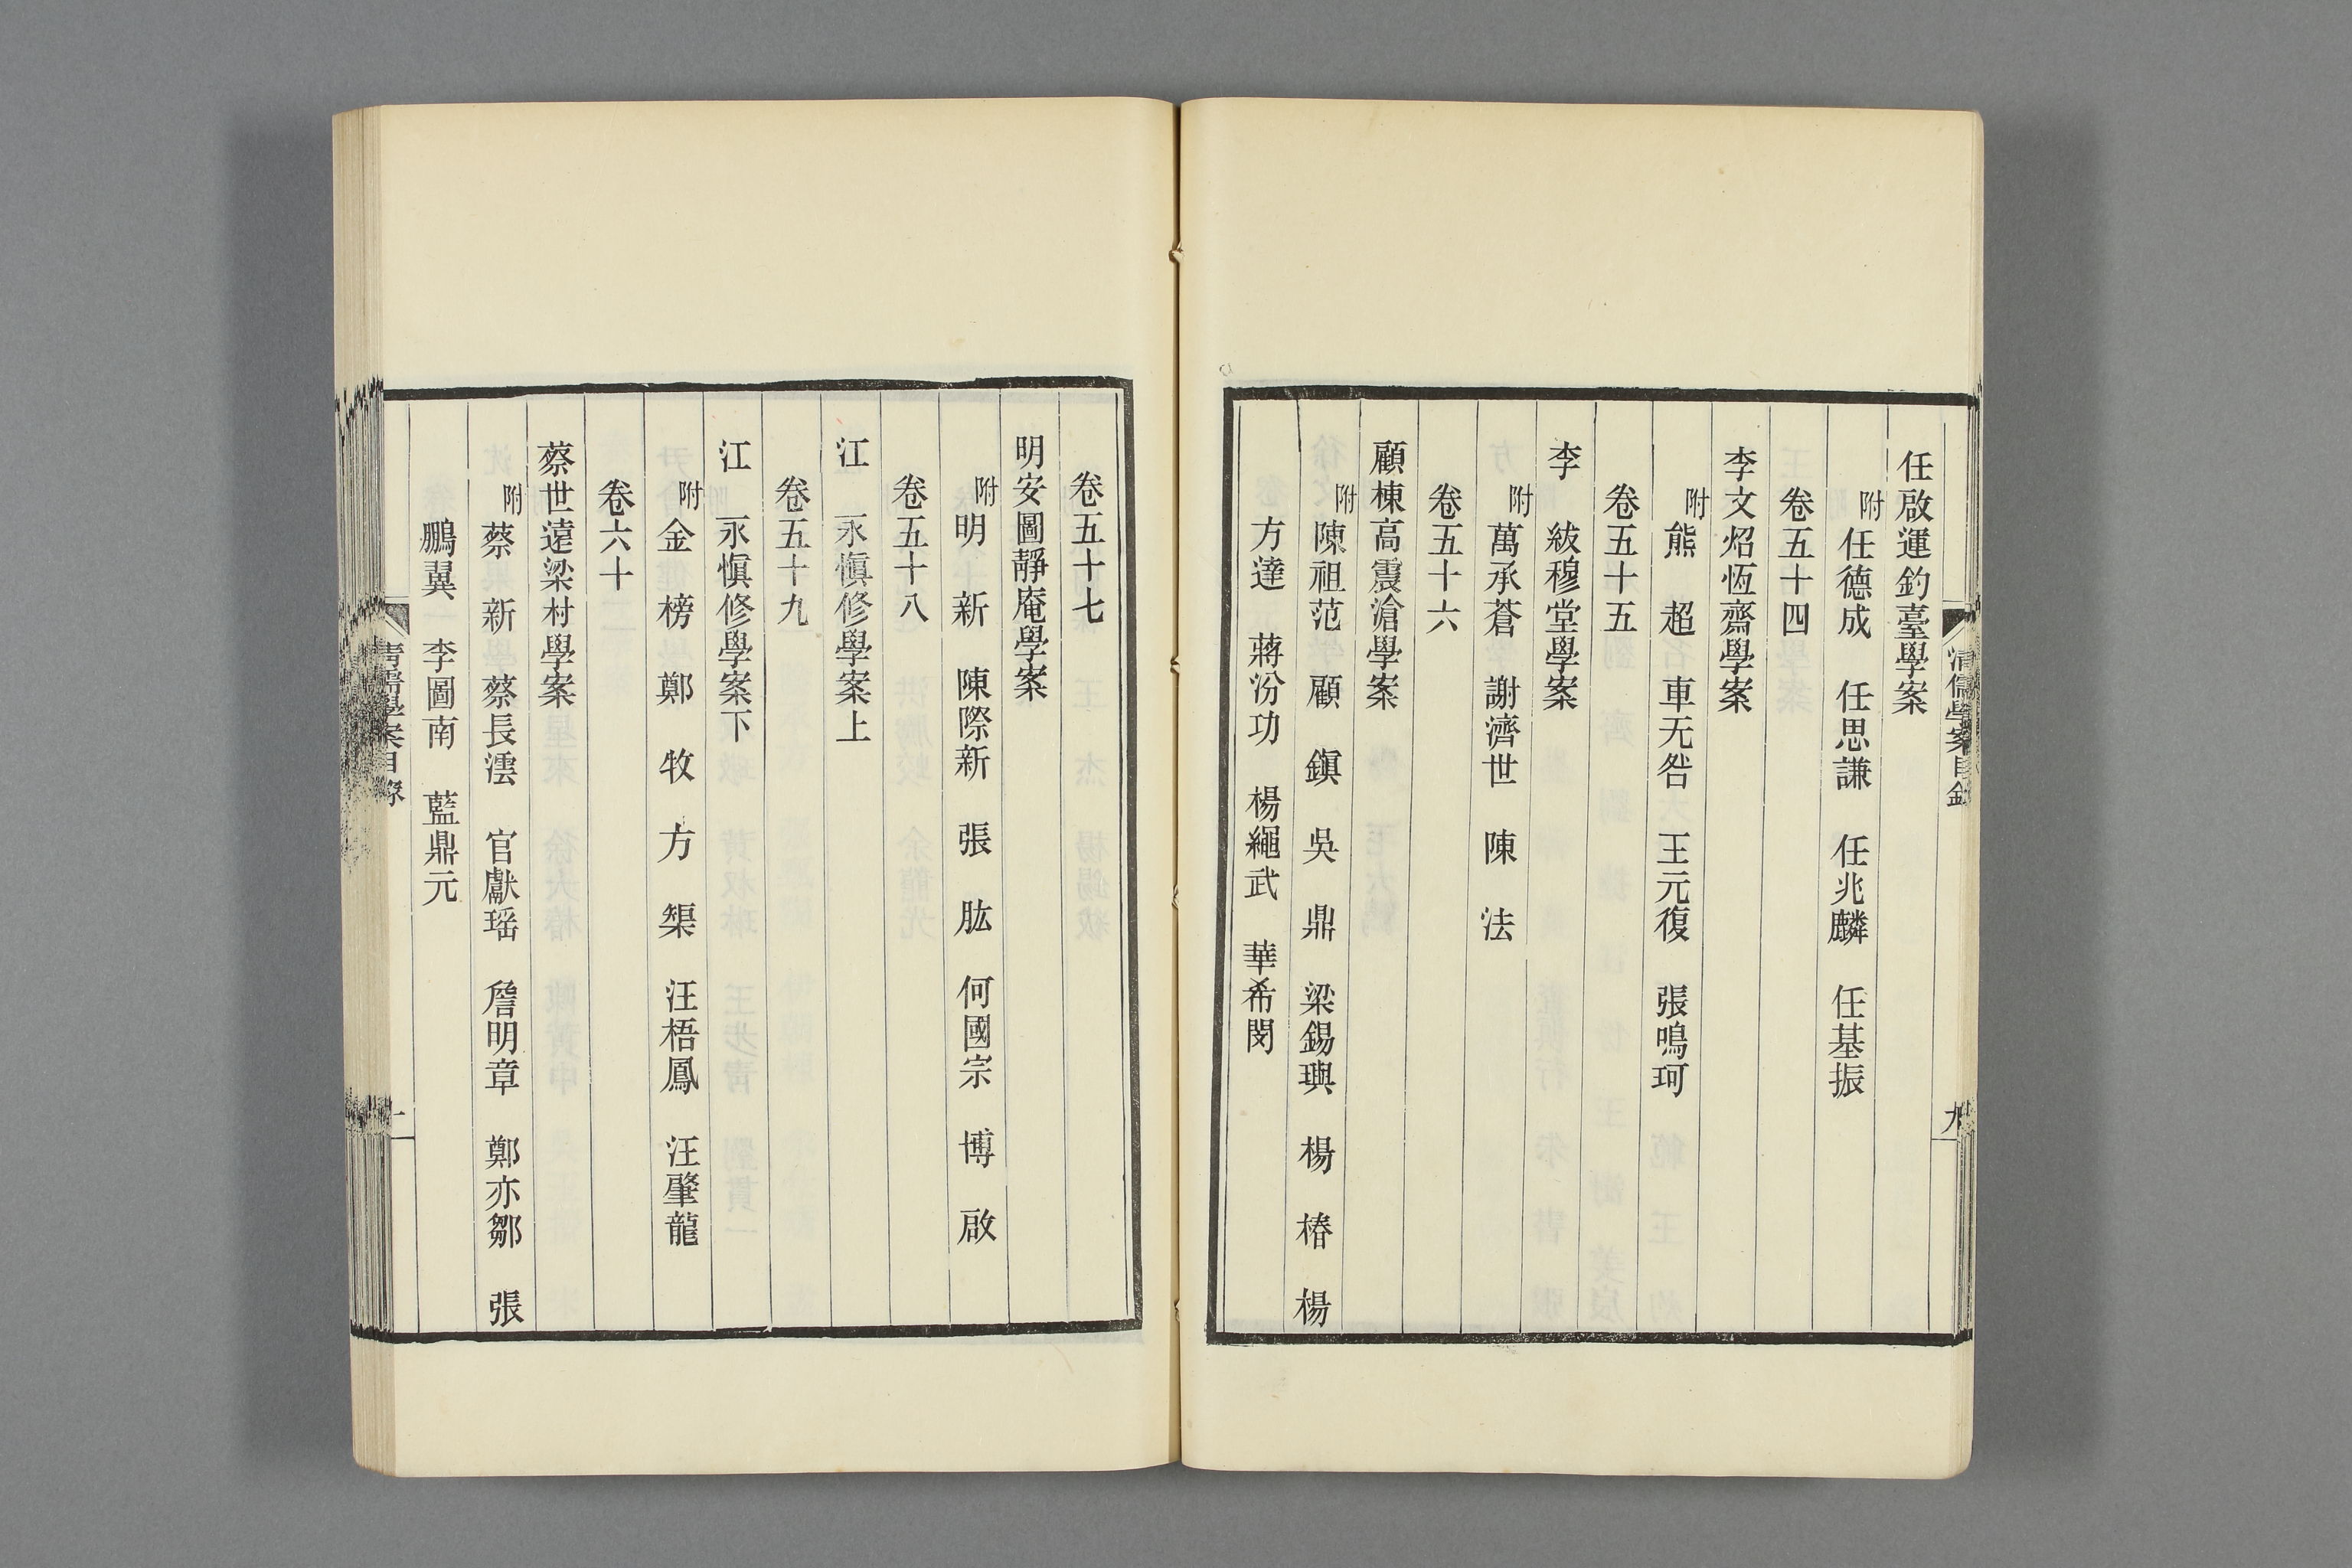 清儒學案目錄
九
任啟運釣臺學案
附任德成 任思謙 任兆麟 任基振
卷五十四
李文炤恆齋學案
附熊 超 車无咎 王元復 張鳴珂
卷五十五
李 紱穆堂學案
附萬承蒼 謝濟世 陳 法
卷五十六
顧棟高震滄學案
附陳祖范 顧 鎭 吳 鼎 梁錫璵 楊 椿 楊
方達 蔣汾功 楊繩武 華希閔
卷五十七
明安圖靜庵學案
附明 新 陳際新 張 肱 何國宗 博 啟
卷五十八
江 永愼修學案上
卷五十九
江 永愼修學案下
附金 榜 鄭 牧 方 榘 汪梧鳳 汪肇龍
卷六十
蔡世遠梁村學案
附蔡 新 蔡長澐 官獻瑤 詹明章 鄭亦鄒 張
鵬翼 李圖南 藍鼎元
清儒學案目錄